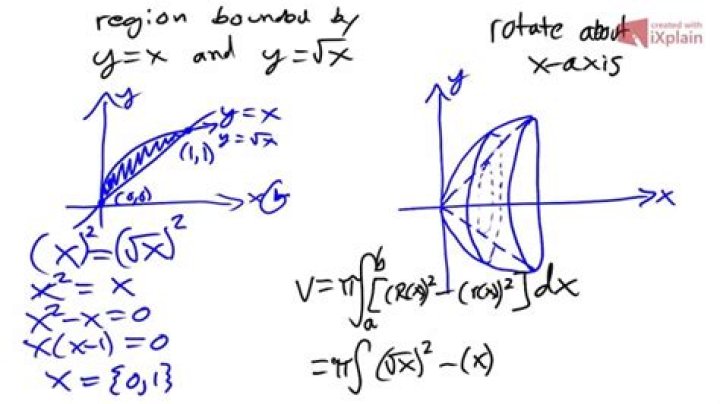 region bounded by
y=x and y=√x
rotate about
x-axis
created with
iXplain
y
y=x
y=√x
(1,1)
(0,0)
x
(x)²=(√x)²
x²=x
x²-x=0
x(x-1)=0
x={0,1}
y
x
V=π∫ₐᵇ[(R(x))²-(r(x))²]dx
=π∫(√x)²-(x)